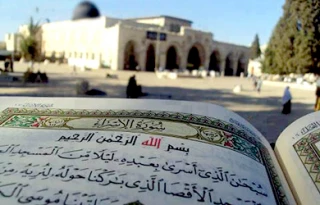 سُورَةُ الإِسْرَاءِ
بِسْمِ اللَّهِ الرَّحْمَٰنِ الرَّحِيمِ
سُبْحَٰنَ الَّذِي أَسْرَىٰ بِعَبْدِهِ لَيْلًا مِّنَ الْمَسْجِدِ
الْأَقْصَا الَّذِي بَٰرَكْنَا حَوْلَهُ لِنُرِيَهُ
مُوسَى